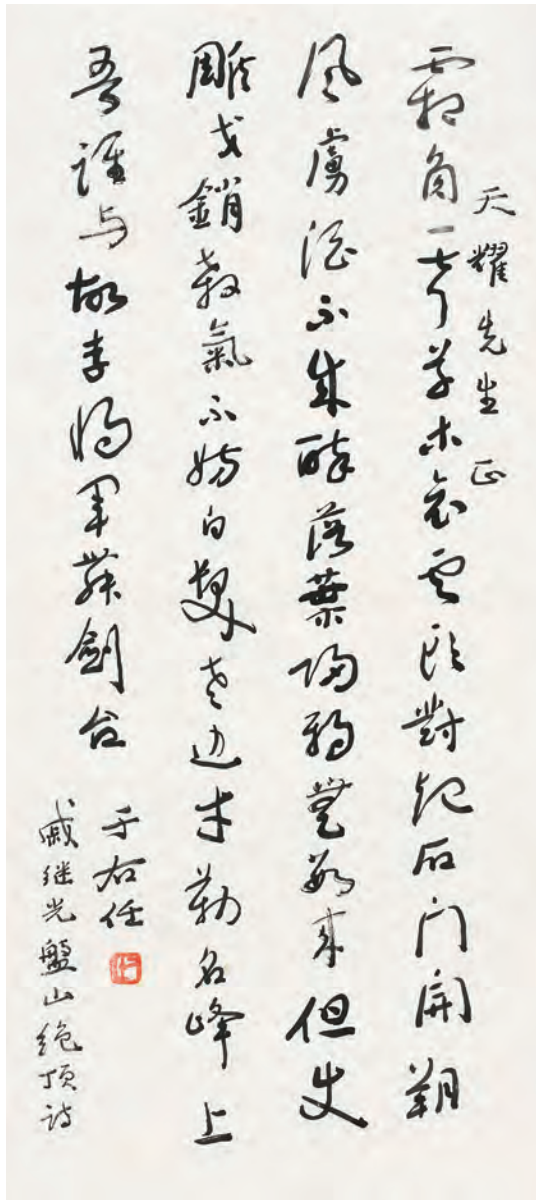 天耀先生正
霜角一聲草木哀雲頭對起石门開朔
風虜酒不成醉落葉歸鴉無數來但使
雕戈銷殺氣不妨白髮老边才勒名峰上
吾誰与故李將軍舞劍台
于右任
戚继光盤山绝顶诗